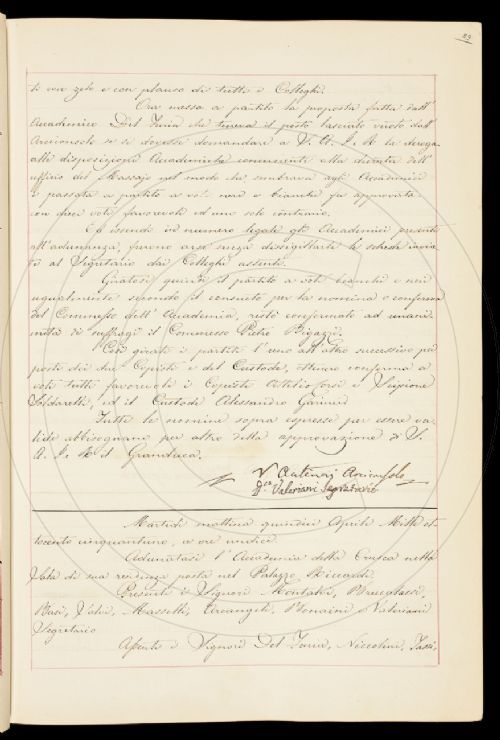 89
ti ora zelo e con plauso di tutti i Colleghi.
Ora messa a partito la proposta fatta dall'
Accademico Del Furia che teneva il posto lasciato vuoto dall'
Arciconsolo se si dovesse domandare a V. A. I. e R. la deroga
alle disposizioni Accademiche concernenti alla durata dell'
ufficio del Massajo nel modo che sembrava agli Accademici
e passata a partito a voti neri e bianchi fu approvata
con dieci voti favorevoli ed uno solo contrario.
Ed essendo in numero legale gli Accademici presenti
all'adunanza, furono arse senza dissigillarle le schede invia-
te al Segretario dai Colleghi assenti.
Giratosi quindi il partito a voti bianchi e neri
ugualmente secondo il consueto per la nomina o conferma
del Commesso dell'Accademia, restò confermato ad unani-
mità di suffragi il Commesso Pietro Bigazzi.
Così girati i partiti l'uno all'altro successivo pei
posti dei due Copisti e del Custode, ottennero conferma a
voti tutti favorevoli i Copisti Attilio Corsi e Scipione
Soldarelli, ed il Custode Alessandro Garinei
Tutte le nomine sopra espresse per essere va-
lide abbisognano per altro della approvazione di S.
A. I. e R. il Granduca.
Arciconsolo
D.co Valeriani Segretario
Martedì mattina quindici Aprile Mille ot-
tocento cinquantuno, a ore undici.
Adunatasi l'Accademia della Crusca nella
Sala di sua residenza posta nel Palazzo Riccardi.
Presenti i Signori Montalvi, Brucalassi,
Busi, Salvi, Masselli, Arcangeli, Bonaini e Valeriani
Segretario
Assenti i Signori Del Furia, Niccolini,